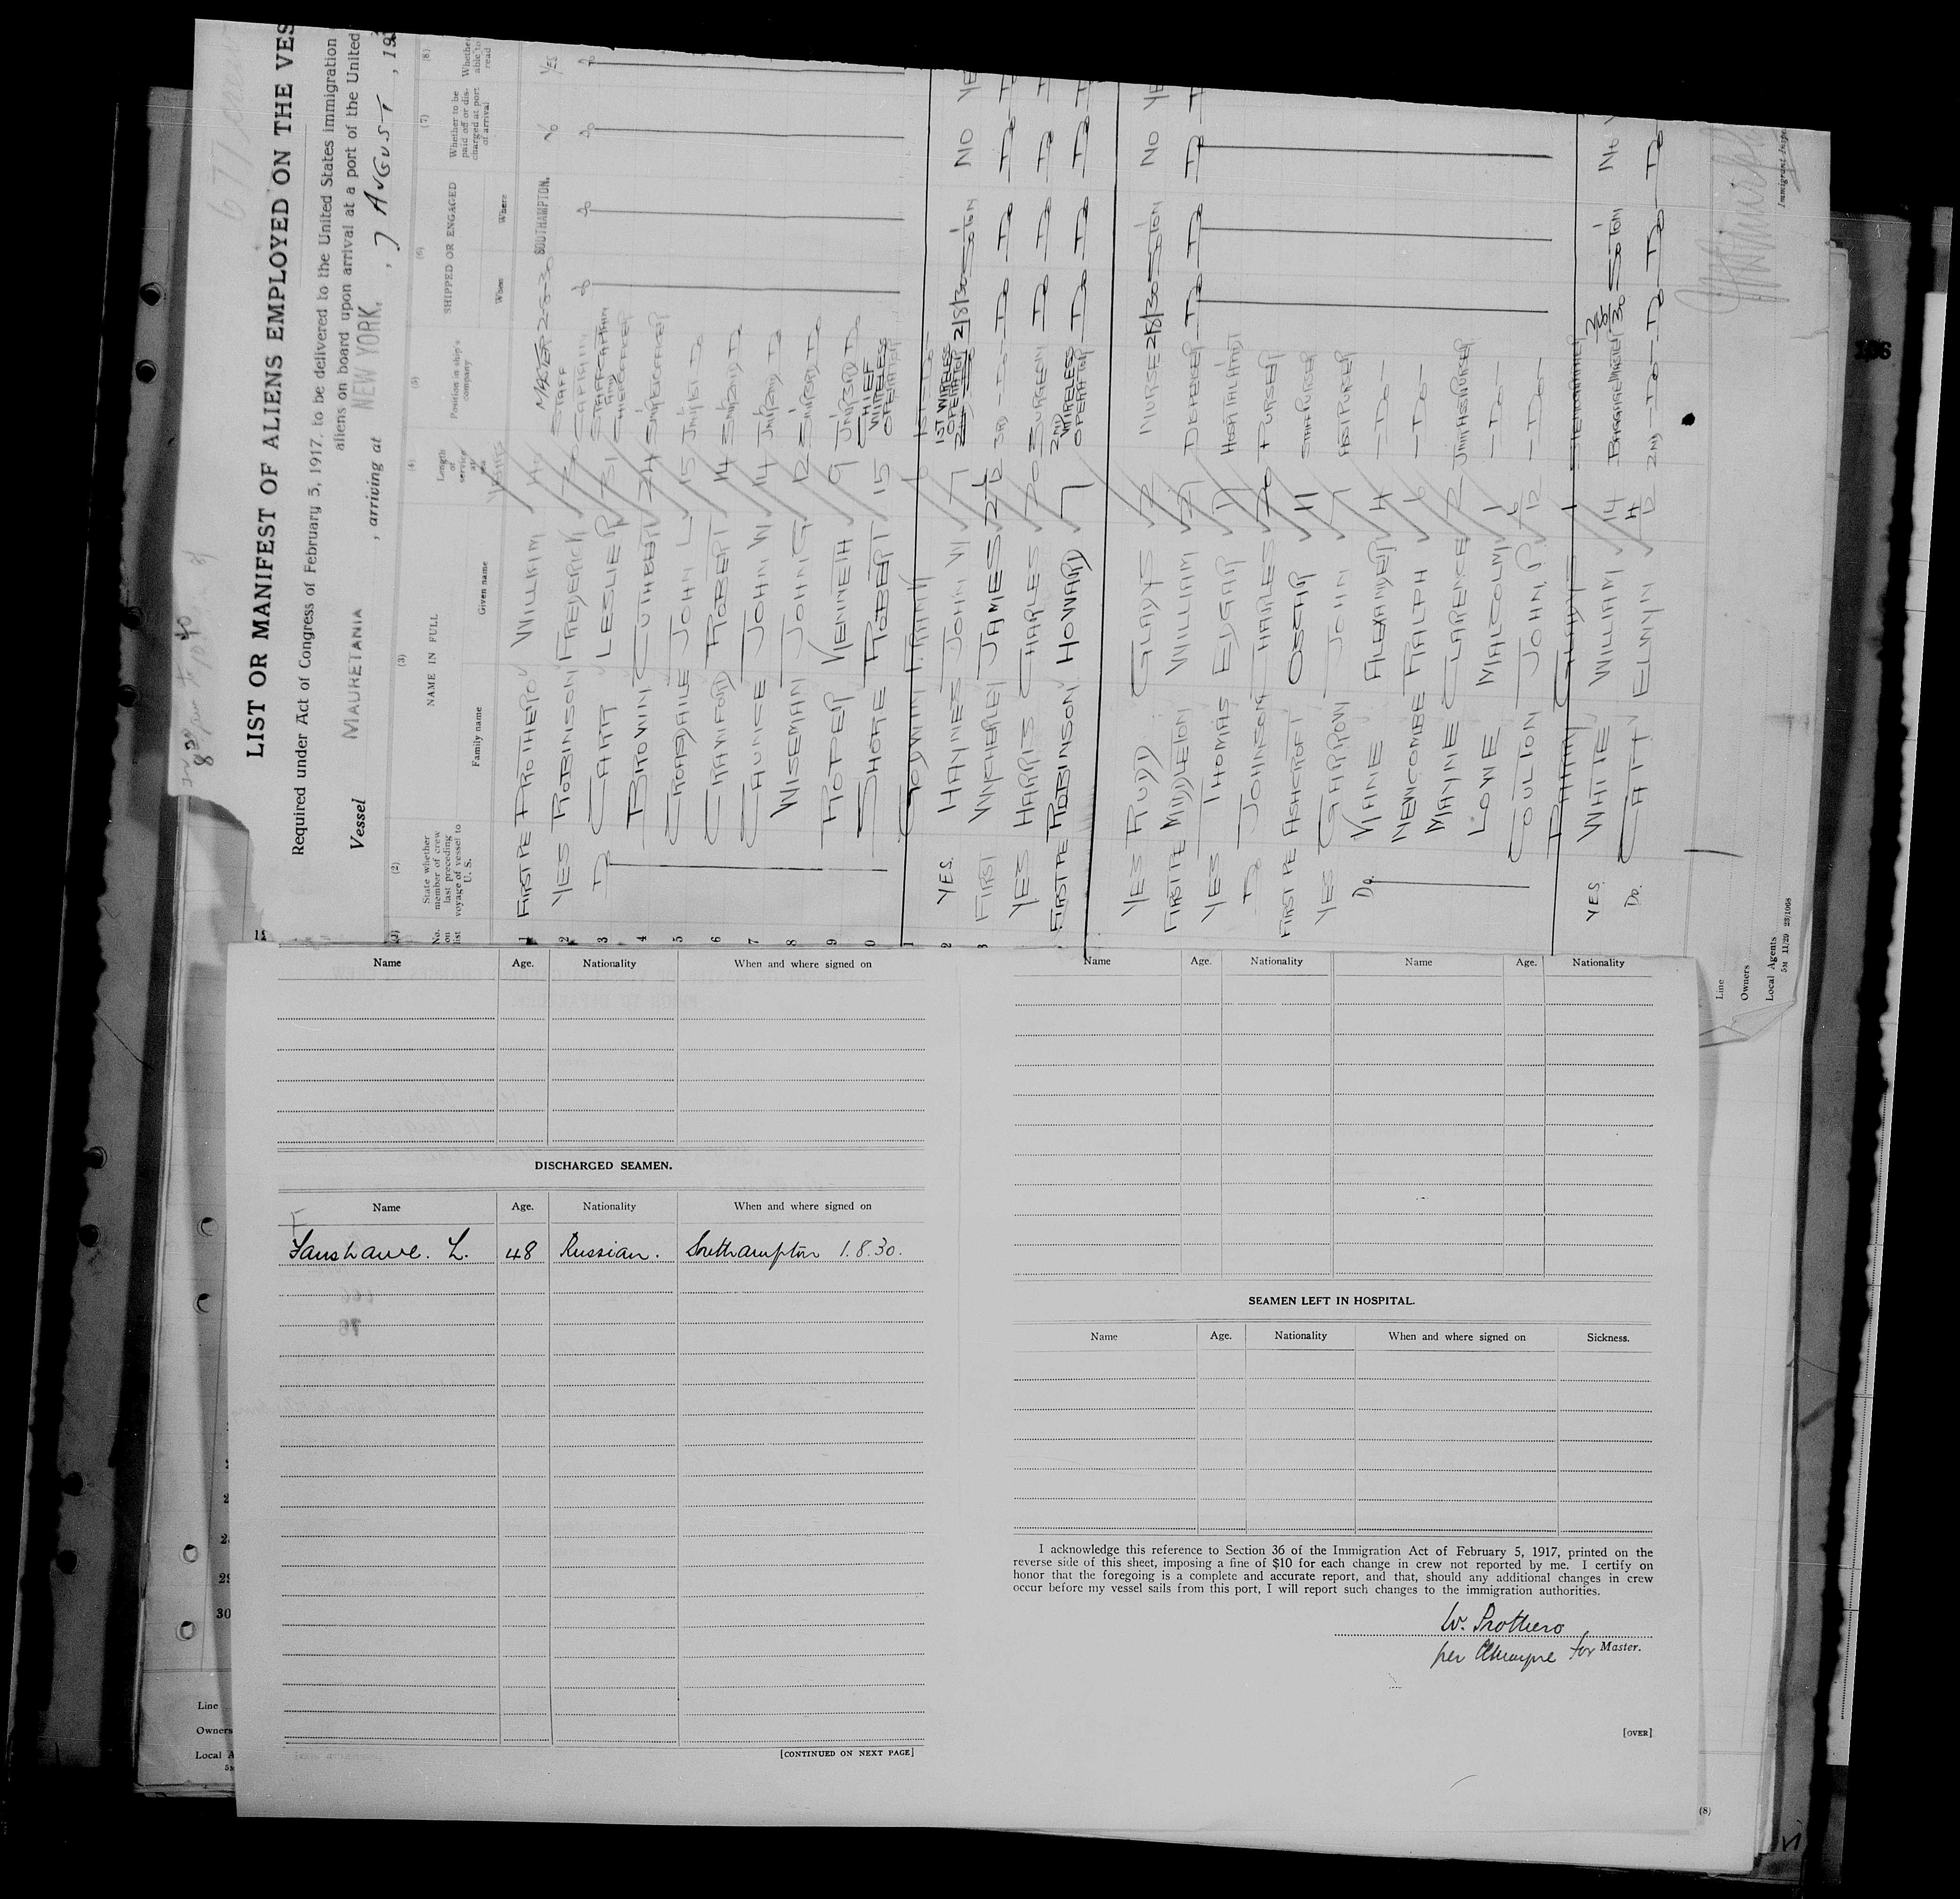 LIST OR MANIFEST OF ALIENS EMPLOYED ON THE VES
Required under Act of Congress of February 5, 1917, to be delivered to the United States immigration
aliens on board upon arrival at a port of the United
Vessel MAURETANIA , arriving at NEW YORK. , 7 AUGUST , 193
(1) (2) (3) (4) (5) (6) (7) (8)
No. on list
State whether member of crew last preceding voyage of vessel to U. S.
NAME IN FULL
Family name Given name
Length of service at sea
Position in ship's company
SHIPPED OR ENGAGED
When Where
Whether to be paid off or discharged at port of arrival
Whether able to read
1 FIRST PROTHERO WILLIAM MASTER 2-8-30 SOUTHAMPTON. No YES
2 YES ROBINSON FREDERICK STAFF CAPTAIN Do Do Do Do
3 Do CARR LESLIE R 31 STAFF CAPTAIN AND CHIEF OFFICER
4 BROWN CUTHBERT 24 SNR 1ST OFFICER
5 CROASDAILE JOHN L 15 JNR 1ST Do
6 CRAWFORD ROBERT 14 SNR 2ND Do
7 CAUNCE JOHN W 14 JNR 2ND Do
8 WISEMAN JOHN G 12 SNR 3RD Do
9 ROPER KENNETH 9 JNR 3RD Do
0 SHORE ROBERT 15 CHIEF WIRELESS OPERATOR
1 GODWIN
2 YES. HAYNES JOHN W 7 1ST WIRELESS OPERATOR 2/8/30 SO'TON NO YE
3 FIRST WYCHERLEY JAMES 3RD - DO - DO DO DO
YES HARRIS CHARLES 20 SURGEON DO DO DO
FIRST ROBINSON HOWARD 7 2ND WIRELESS OPERATOR DO DO DO
YES RUDD GLADYS 2 NURSE 2/8/30 SO'TON NO YE
FIRST MIDDLETON WILLIAM 27 DISPENSER DO DO DO
YES THOMAS EDGAR 17 HOSPITAL ATTDT
DO JOHNSON CHARLES 20 PURSER
FIRST ASHCROFT OSCAR 11 STAFF PURSER
YES GARROW JOHN 7 ASST PURSER
Do. KANE ALEXANDER 4 - DO -
NEWCOMBE RALPH 6 - DO -
MAYNE CLARENCE 2 JNR ASST PURSER
LOWE MALCOLM 1 - DO -
COULTON JOHN. P 6/12 - DO -
GLADYS 1 STENOGRAPHER
YES. WHITE WILLIAM 14 BAGGAGE MASTER 2/8/30 SO'TON No
Do. CATT ELWYN 4/12 2ND - DO - DO DO DO
Line
Owners
Local Agents
5M 11/29 23/1068
Immigrant Inspe
Name Age. Nationality When and where signed on
DISCHARGED SEAMEN.
Name Age. Nationality When and where signed on
Fanshawe. L. 48 Russian. Southampton 1.8.30.
[CONTINUED ON NEXT PAGE]
Name Age. Nationality Name Age. Nationality
SEAMEN LEFT IN HOSPITAL.
Name Age. Nationality When and where signed on Sickness.
I acknowledge this reference to Section 36 of the Immigration Act of February 5, 1917, printed on the
reverse side of this sheet, imposing a fine of $10 for each change in crew not reported by me. I certify on
honor that the foregoing is a complete and accurate report, and that, should any additional changes in crew
occur before my vessel sails from this port, I will report such changes to the immigration authorities.
W. Prothero
per CMayne for Master.
[OVER]
(8)
29
30
Line
Owners
Local A